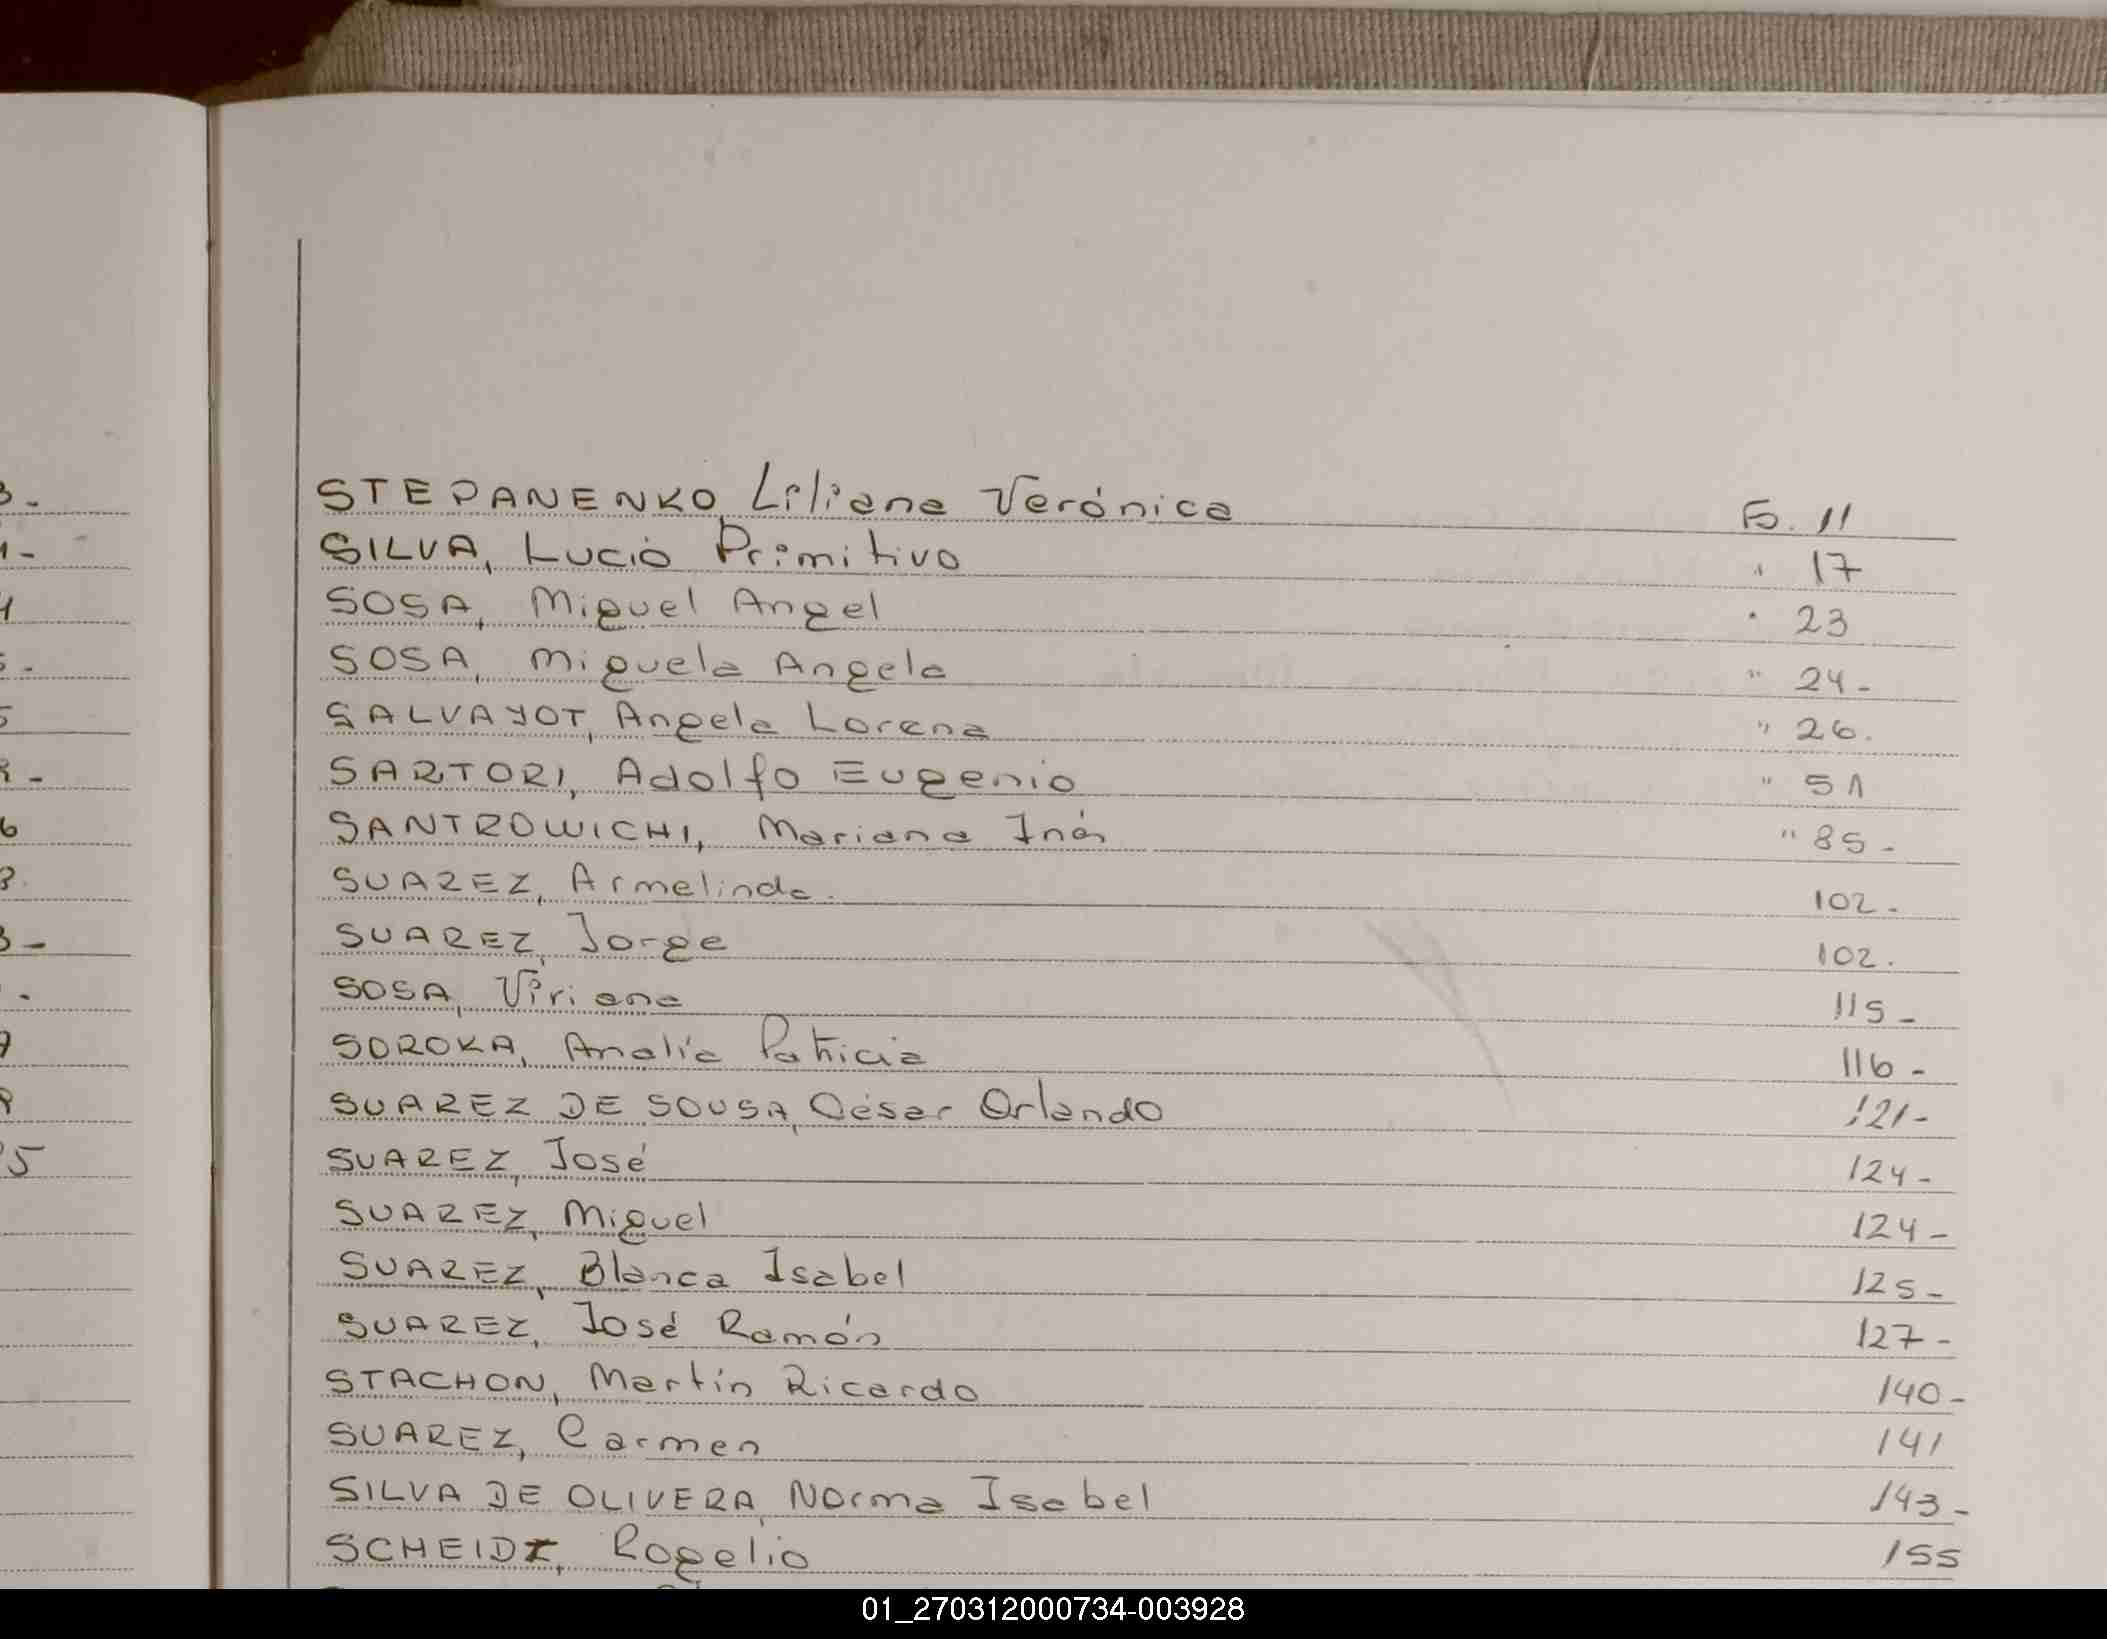 STEPANENKO, Liliana Verónica Fo. 11
SILVA, Lucio Primitivo " 17
SOSA, Miguel Angel " 23
SOSA, Miguela Angela " 24-
SALVAYOT, Angela Lorena " 26.
SARTORI, Adolfo Eugenio " 51
SANTROWICHI, Mariana Inés " 85-
SUAREZ, Armelinda. 102-
SUAREZ, Jorge 102.
SOSA, Viviana 115-
SOROKA, Analía Patricia 116-
SUAREZ DE SOUSA, César Orlando 121-
SUAREZ, José 124-
SUAREZ, Miguel 124-
SUAREZ, Blanca Isabel 125-
SUAREZ, José Ramón 127-
STACHON, Martín Ricardo 140-
SUAREZ, Carmen 141
SILVA DE OLIVERA, Norma Isabel 143-
SCHEIDT, Rogelio 155
01_270312000734-003928